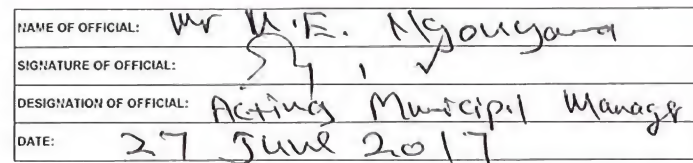 NAME OF OFFICIAL: Mr M.E.
SIGNATURE OF OFFICIAL:
DESIGNATION OF OFFICIAL: Acting Municipal Manager
DATE: 27 June 2017